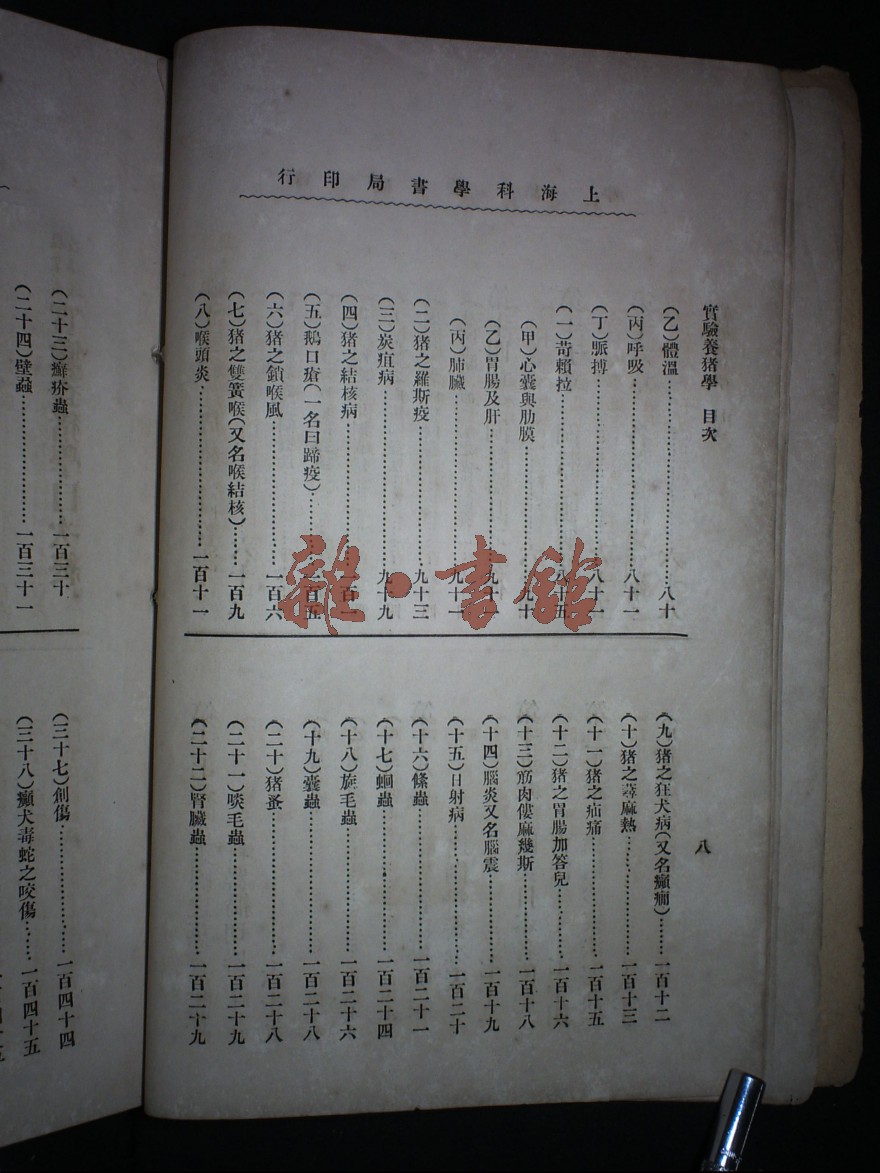 上海科學書局印行
實驗養猪學　目次
八
(乙)體溫……八十
(丙)呼吸……八十一
(丁)脈搏……八十一
(一)苛賴拉……八十五
(甲)心囊與肋膜……九十
(乙)胃腸及肝……九十一
(丙)肺臟……九十一
(二)猪之羅斯疫……九十三
(三)炭疽病……九十九
(四)猪之結核病……一百一
(五)鵝口瘡(一名曰蹄疫)……一百五
(六)猪之鎖喉風……一百六
(七)猪之雙簧喉(又名喉結核)……一百九
(八)喉頭炎……一百十一
(九)猪之狂犬病(又名癲癎)……一百十二
(十)猪之蕁麻熱……一百十三
(十一)猪之疝痛……一百十五
(十二)猪之胃腸加答兒……一百十六
(十三)筋肉僂麻幾斯……一百十八
(十四)腦炎又名腦震……一百十九
(十五)日射病……一百二十
(十六)絛蟲……一百二十一
(十七)蛔蟲……一百二十四
(十八)旋毛蟲……一百二十六
(十九)囊蟲……一百二十八
(二十)猪蚤……一百二十八
(二十一)啖毛蟲……一百二十九
(二十二)腎臟蟲……一百二十九
(二十三)癬疥蟲……一百三十
(二十四)壁蝨……一百三十一
(三十七)創傷……一百四十四
(三十八)癲犬毒蛇之咬傷……一百四十五
雜·書館